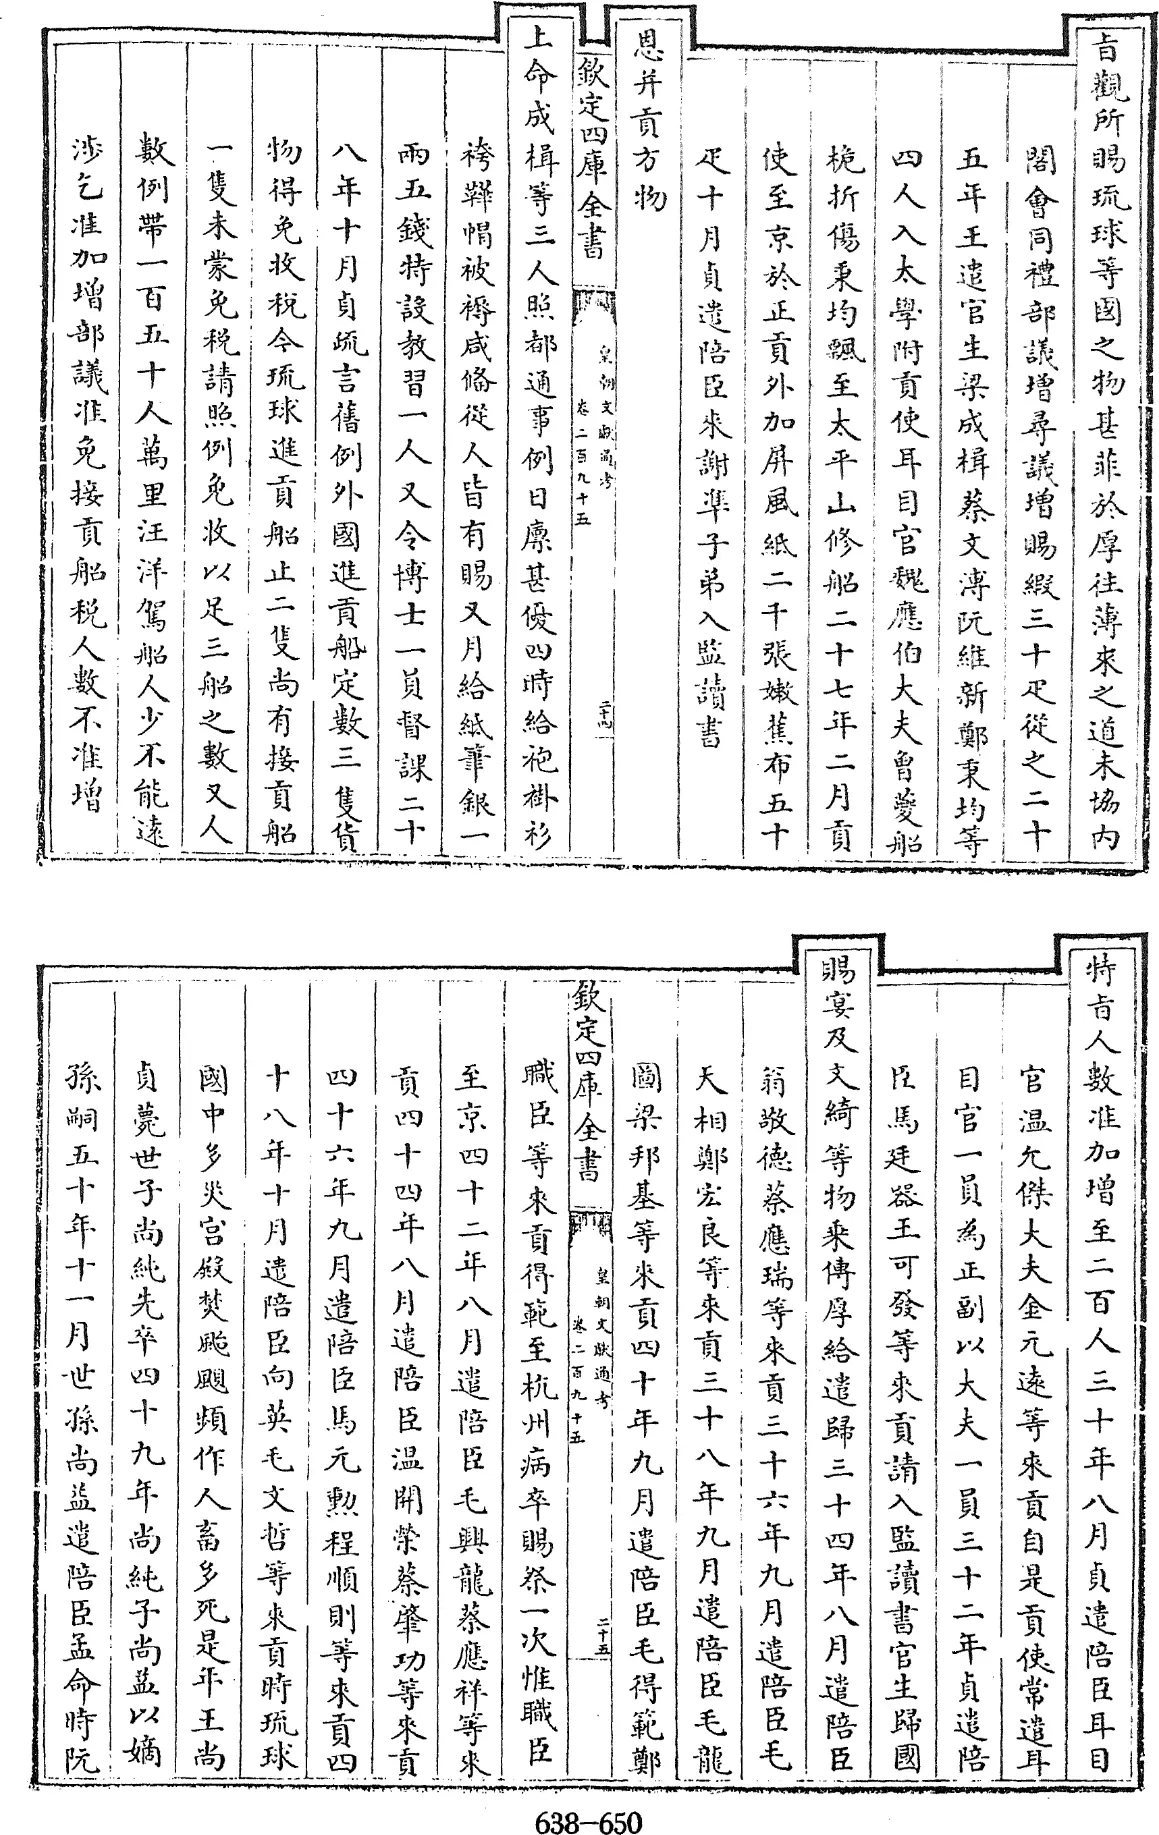 旨觀所賜琉球等國之物甚菲於厚往薄來之道未協内
閣會同禮部議增尋議增賜緞三十疋從之二十
五年王遣官生梁成楫蔡文溥阮維新鄭秉均等
四人入太學附貢使耳目官魏應伯大夫曾夔船
桅折傷秉均飄至太平山修船二十七年二月貢
使至京於正貢外加屏風紙二千張嫩蕉布五十
疋十月貞遣陪臣來謝準子弟入監讀書
恩并貢方物
欽定四庫全書
皇朝文獻通考
卷二百九十五
二十四
上命成楫等三人照都通事例日廪甚優四時給袍褂衫
袴鞾帽被褥咸備從人皆有賜又月給紙筆銀一
兩五錢特設教習一人又令博士一員督課二十
八年十月貞疏言舊例外國進貢船定數三隻貨
物得免收税今琉球進貢船止二隻尚有接貢船
一隻未蒙免税請照例免收以足三船之數又人
數例帶一百五十人萬里汪洋駕船人少不能遠
涉乞准加增部議准免接貢船税人數不准增
特旨人數准加增至二百人三十年八月貞遣陪臣耳目
官温允傑大夫金元遠等來貢自是貢使常遣耳
目官一員為正副以大夫一員三十二年貞遣陪
臣馬廷器王可發等來貢請入監讀書官生歸國
賜宴及文綺等物乘傳厚給遣歸三十四年八月遣陪臣
翁敬德蔡應瑞等來貢三十六年九月遣陪臣毛
天相鄭宏良等來貢三十八年九月遣陪臣毛龍
圖梁邦基等來貢四十年九月遣陪臣毛得範鄭
欽定四庫全書
皇朝文獻通考
卷二百九十五
二十五
職臣等來貢得範至杭州病卒賜祭一次惟職臣
至京四十二年八月遣陪臣毛興龍蔡應祥等來
貢四十四年八月遣陪臣温開榮蔡肇功等來貢
四十六年九月遣陪臣馬元勲程順則等來貢四
十八年十月遣陪臣向英毛文哲等來貢時琉球
國中多災宫殿焚颱颶頻作人畜多死是年王尚
貞薨世子尚純先卒四十九年尚純子尚益以嫡
孫嗣五十年十一月世孫尚益遣陪臣孟命時阮
638-650